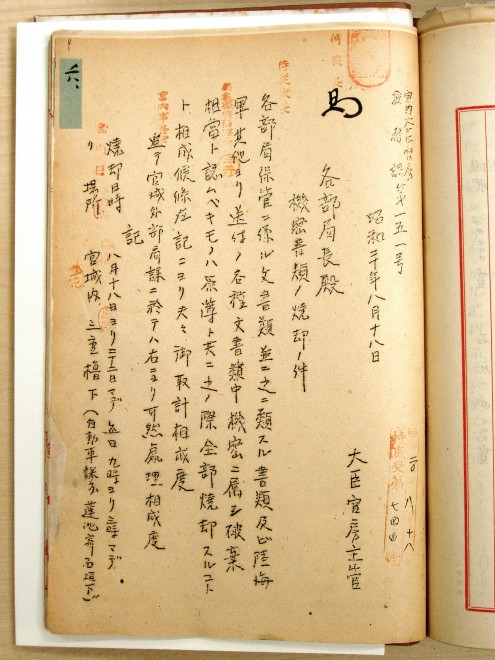 昭和二十年八月十八日
大臣官房主管
各部局長殿
機密書類ノ焼却ノ件
各部局保管ニ係ル文書類並ニ之ニ類スル書類及ビ陸海
軍其他ヨリ送付ノ各種文書類中機密ニ属シ破棄
相当ト認ムベキモノハ原簿ト共ニ之ノ際全部焼却スルコト
ト相成候條左記ニヨリ夫々御取計相成度
追テ宮城外部局課ニ於テハ右ニヨリ可然処理相成度
記
焼却日時 八月十八日ヨリ二十二日マデ 毎日九時ヨリ三時マデ
〃 場所 宮城内 三重櫓下(自動車課分蓮池寄石垣下)
二〇 八 十八
六
侍従次長